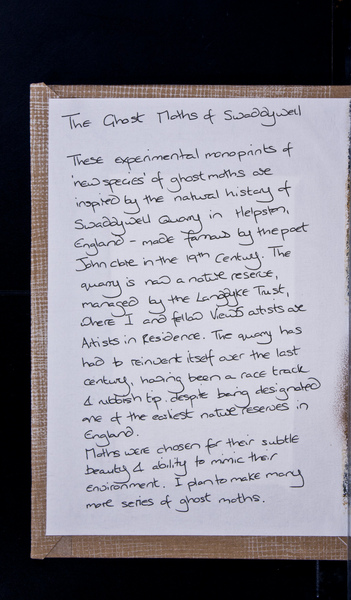 The Ghost Moths of Swaddywell
These experimental monoprints of
'new species' of ghost moths are
inspired by the natural history of
Swaddywell Quarry in Helpston,
England - made famous by the poet
John Clare in the 19th Century. The
quarry is now a nature reserve,
managed by the Langdyke Trust,
where I and fellow Views artists are
Artists in Residence. The quarry has
had to reinvent itself over the last
century, having been a race track
& rubbish tip. despite being designated
one of the earliest nature reserves in
England.
Moths were chosen for their subtle
beauty & ability to mimic their
environment. I plan to make many
more series of ghost moths.